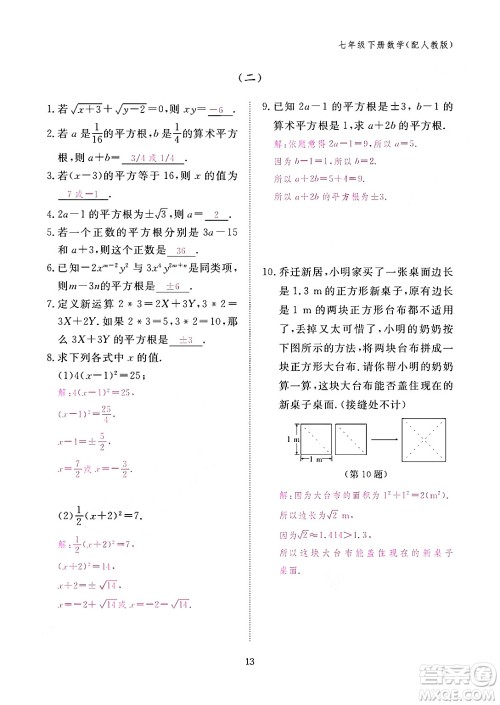 七年级下册数学(配人教版)
(二)
1. 若√(x+3)+√(y-2)=0,则 xy= -6 .
2. 若 a 是 1/16 的平方根,b 是 1/4 的算术平方
根,则 a+b= 3/4 或 1/4 .
3. 若(x-3)的平方等于 16,则 x 的值为
7 或-1 .
4. 2a-1 的平方根为±√3,则 a= 2 .
5. 若一个正数的平方根分别是 3a-15
和 a+3,则这个正数为 36 .
6. 已知-2x^(m-2)y² 与 3x⁴y^(2m+n)是同类项,
则 m-3n 的平方根是 ±6 .
7. 定义新运算 2 * 3 = 2X+3Y,3 * 2 =
3X+2Y. 如果 2 * 3=9,3 * 2=6,那
么 3X+3Y 的平方根是 ±3 .
8. 求下列各式中 x 的值.
(1)4(x-1)²=25;
解:4(x-1)²=25,
(x-1)²=25/4,
x-1=±5/2,
x=7/2或 x=-3/2.
(2)1/2(x+2)²=7.
解:1/2(x+2)²=7,
(x+2)²=14,
x+2=±√14,
x=-2+√14 或 x=-2-√14.
9. 已知 2a-1 的平方根是±3,a+2b 的
算术平方根是 1,求 a+2b 的平方根.
解:依题意得 2a-1=9,所以 a=5.
因为 a+2b=1,所以 b=-2.
所以 a+2b 的平方根是±1.
10. 乔迁新居,小明家买了一张桌面边长
是 1.3 m 的正方形新桌子,原有的边
长是 1 m 的两块台布都不适用了,
丢掉又太可惜了,小明的奶奶按如
下图所示的方法,将两块台布拼成一
块正方形大台布,请你帮小明的奶奶
算一算,这块大台布能否盖住现在的
新桌子桌面.(接缝处不计)
1 m 1 m
(第 10 题)
解:因为大台布的面积 1²+1²=2(m²).
所以边长为√2 m.
因为√2≈1.414>1.3,
所以这块大台布能盖住现在的新桌子
桌面.
13